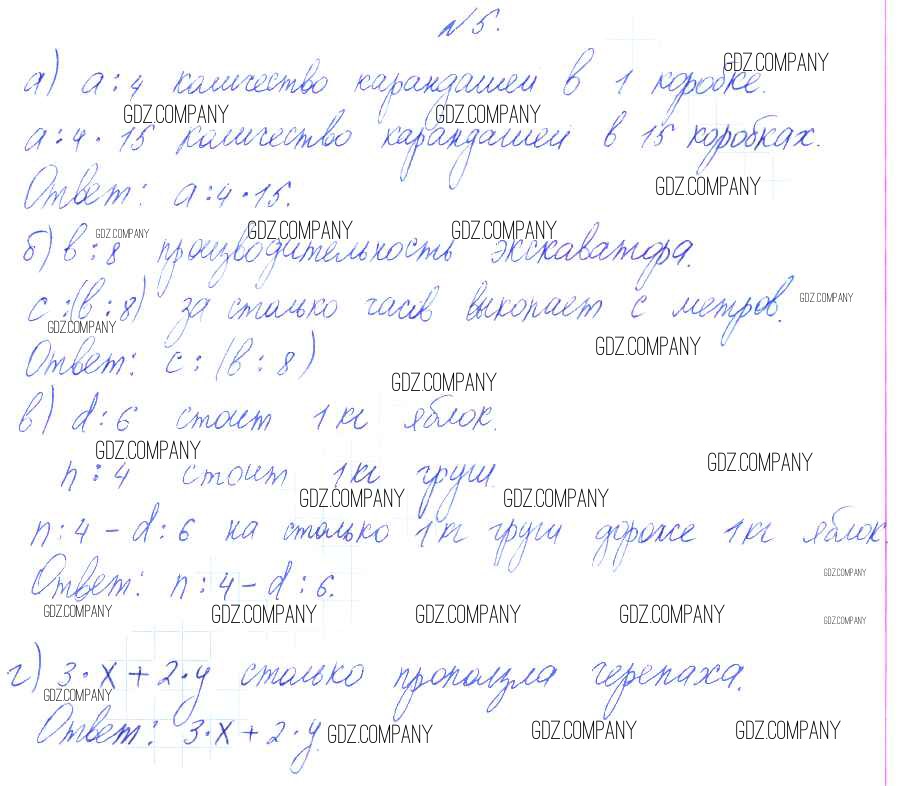 №5.
а) a : 4 количество карандашей в 1 коробке.
a : 4 · 15 количество карандашей в 15 коробках.
Ответ: a : 4 · 15.
б) b : 8 производительность экскаватора.
c : (b : 8) за столько часов выкопает c метров.
Ответ: c : (b : 8)
в) d : 6 стоит 1 кг яблок.
n : 4 стоит 1 кг груш.
n : 4 – d : 6 на столько 1 кг груш дороже 1 кг яблок.
Ответ: n : 4 – d : 6.
г) 3 · x + 2 · y столько проползла черепаха.
Ответ: 3 · x + 2 · y.
GDZ.COMPANY
GDZ.COMPANY GDZ.COMPANY
GDZ.COMPANY
GDZ.COMPANY GDZ.COMPANY GDZ.COMPANY
GDZ.COMPANY
GDZ.COMPANY
GDZ.COMPANY
GDZ.COMPANY
GDZ.COMPANY GDZ.COMPANY
GDZ.COMPANY GDZ.COMPANY
GDZ.COMPANY
GDZ.COMPANY GDZ.COMPANY GDZ.COMPANY GDZ.COMPANY GDZ.COMPANY
GDZ.COMPANY
GDZ.COMPANY GDZ.COMPANY GDZ.COMPANY